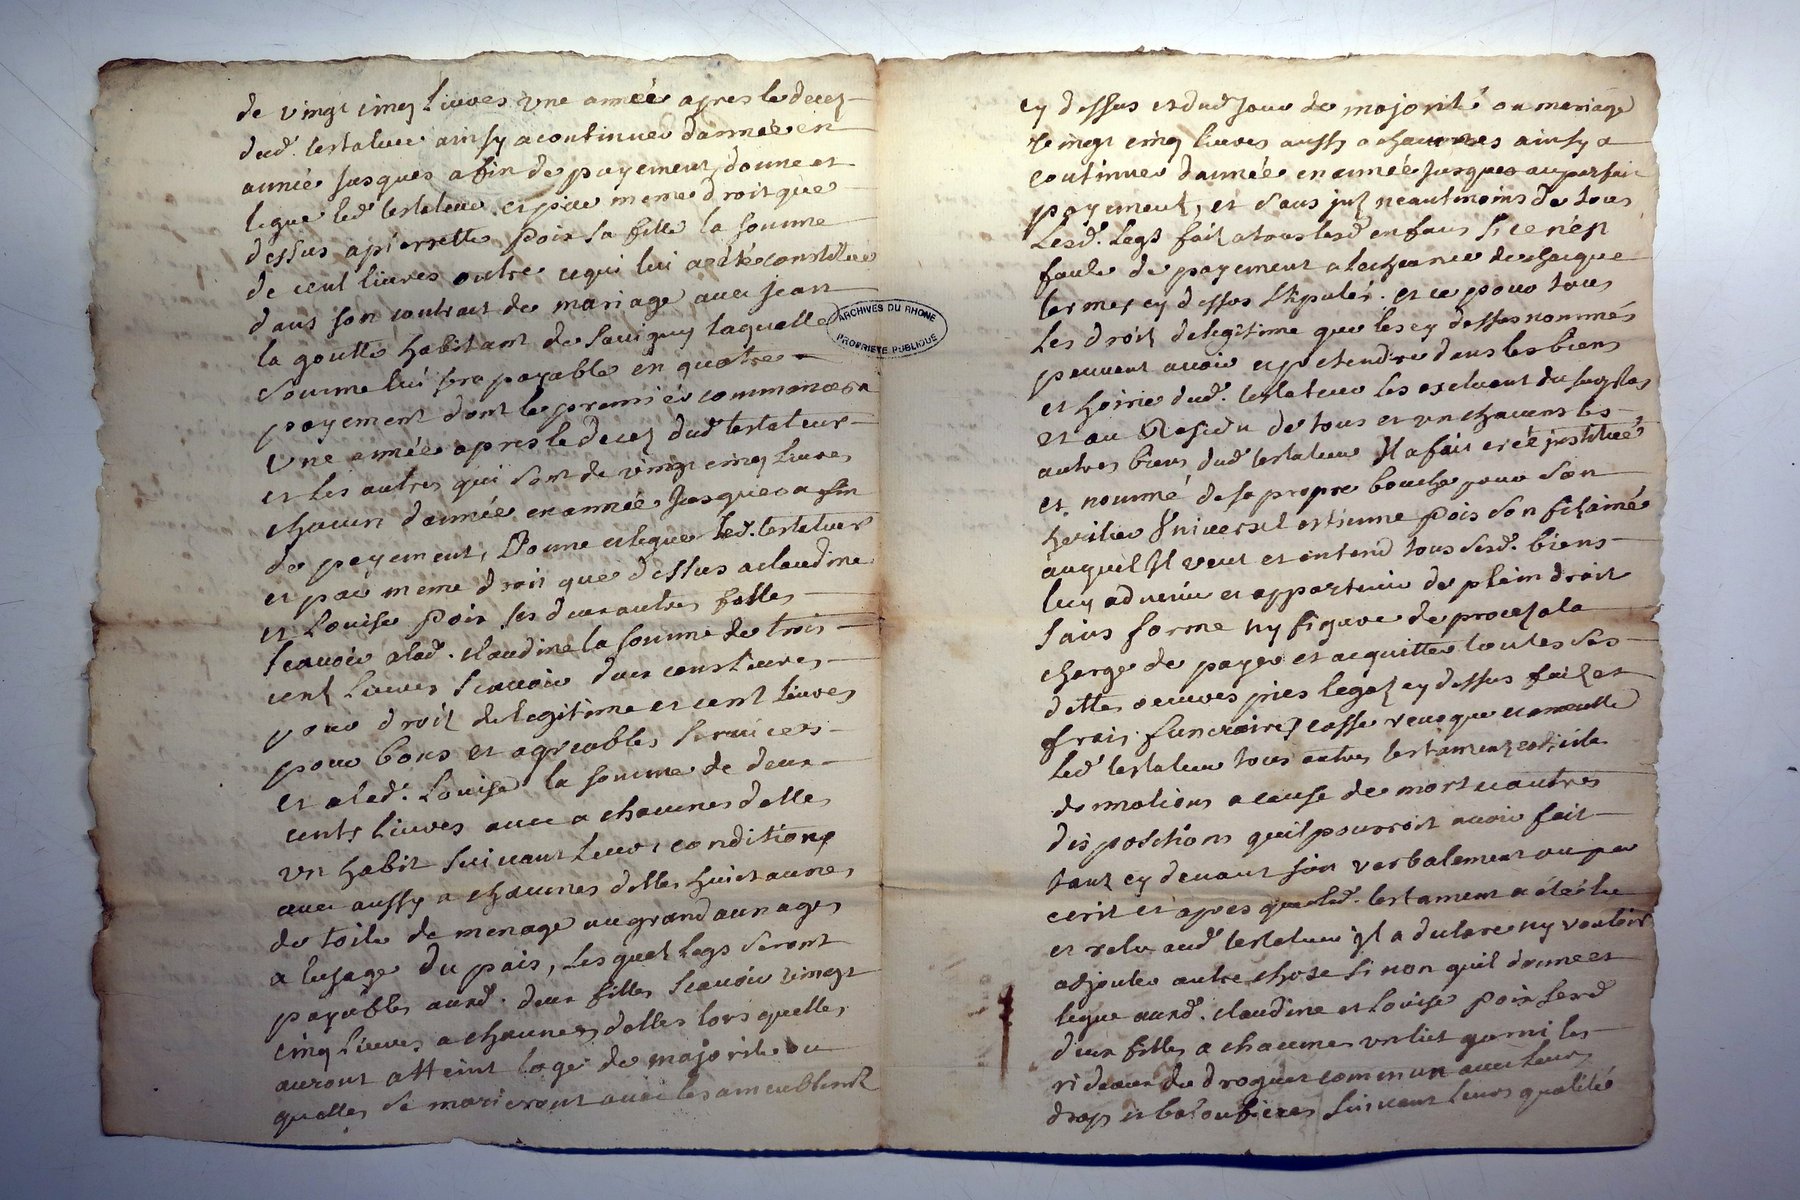 de vingt cinq Livres Vne année apres le decez
dud. testateur ainsy a continuer dannée en
année Jusques a fin de payement, donne et
legue led. testateur et par meme droit que
dessus a pierrette Poix sa fille la somme
de cent livres outre ce qui lui a eté constitué
dans son contract de mariage avec Jean
la goutte habitant de Savigny laquelle
somme lui sera payable en quatre
payement dont le premier commancera
Vne année apres le decez dud testateur
et les autres qui sont de vingt cinq Livres
chacun dannée en année Jusques a fin
de payement, Donne et legue led. testateur
et par meme droit que dessus a claudine
et Louise Poix ses deux autres filles
scavoir a lad. claudine la somme de trois
cent Livres scavoir deux cens Livres
pour droit de legitime et cent livres
pour bons et agreables services
et a lad. Louise la somme de deux
cents livres avec a chacunes delles
vn habit suivant Leur condition
avec aussy a chacunes delles huict aunes
de toile de menage au grand aunage
a lusage du pais, Lesquel legs seront
payables auxd. deux filles scavoir vingt
cinq Livres a chacunes delles lors quelles
auront atteint lage de majorité ou
quelles se marieront avec les ameublemt
ARCHIVES DU RHONE
PROPRIETE PUBLIQUE
cy dessus et dud Jour de majorité ou mariage
Vingt cinq livres aussy a chacunes ainsy a
continuer dannée en année Jusques au parfait
payement, et sans jnt neantmoins de tous
Lesd. Legs fait a tous lesd enfans si ce nest
faute de payement a lecheance de chaque
termes cy dessus stipulés. et ce pour tous
Les droit de legitime que les cy dessus nommés
peuvent avoir et pretendre dans les biens
et hoirie dud. testateur les excluant du surplus
et au Residu de tous et vn chacuns les
autres biens dud testateur Il a fait creé jnstitué
et nommé de sa propre bouche pour son
heritier Vniversel estienne Poix son fils ainé
auquel Il veut et entend tous sesd. biens
luy advenir et appartenir de plein droit
sans forme ny figure de procez a la
charge de payer et acquitter toutes ses
dettes oeuvres pies legat cy dessus fait et
frais funeraires casse revoque et annulle
Led testateur tous autres testament codicile
donnations a cause de mort et autres
dispositions quil pourroit avoir fait
tant cy devant soit verbalement ou par
ecrit et apres que led. testament a eté lu
et relu aud testateur Il a declaré ny vouloir
adjouter autre chose si non quil donne et
legue auxd. claudine et Louise Poix sesd
deux filles a chacunes vn lict garni les
rideaux de droguet commun avec leur
drap et suivant leurs qualité